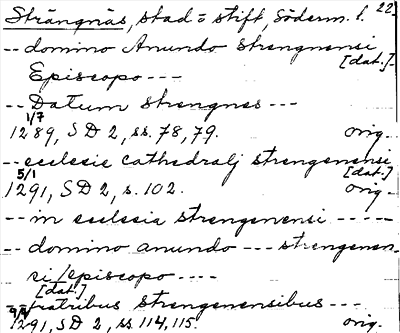 Strängnäs, stad o stift, Söderm. l. 22.
-- domino Anundo strengnensi [dat.]
Episcopo ---
-- Datum strengnes ---
1/7 1289, SD 2, ss. 78, 79. orig.
-- ecclesie cathedralj strengenensi [dat.]
5/1 1291, SD 2, s. 102. orig.
-- in ecclesia strengenensi -----
-- domino anundo --- strengenen-
si/episcopo ---- [dat.]
-- fratribus strengenensibus ---
1291, SD 2, ss. 114, 115. orig.